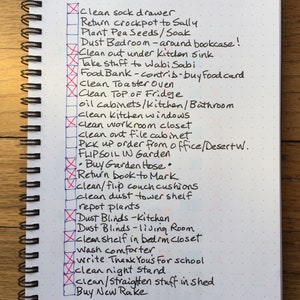 clean sock drawer
Return crockpot to Sally
Plant Pea Seeds/Soak
Dust Bedroom - around bookcase!
Clean out under kitchen sink
Take stuff to Wabi Sabi
Food Bank - contrib - buy Food card
Clean Toaster Oven
Clean Top of Fridge
oil cabinets/kitchen/Bathroom
clean kitchen windows
clean workroom closet
clean out file cabinet
Pick up order from office/Desert W.
FLIP SOIL IN Garden
• Buy Garden Hose •
Return book to Mark
clean/flip couch cushions
clean dust tower shelf
repot plants
Dust Blinds - Kitchen
Dust Blinds - living Room
clean shelf in bedrm closet
wash comforter
write Thank You's For school
clean night stand
clean/straighten stuff in shed
Buy New Rake